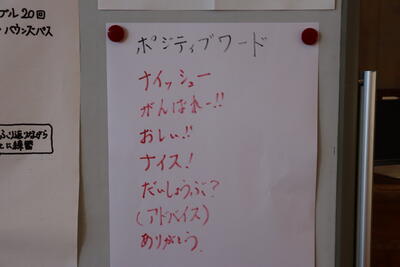 ブル20回
バウンズパス
ふり返りながら
とに練習
ポジティブワード
ナイッシュー
がんばれー!!
おしい!!
ナイス!
だいじょうぶ?
(アドバイス)
ありがとう